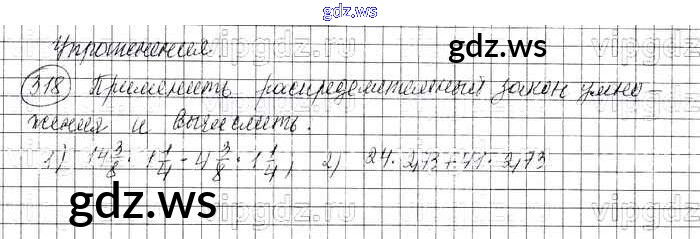 gdz.ws
Упражнения
gdz.ws
318 Применить распределительный закон умно-
жения и вычислить.
1) 14 3/8 · 1 1/4 - 4 3/8 · 1 1/4; 2) 24 · 2,73 + 71 · 2,73
gdz.ws
gdz.ws